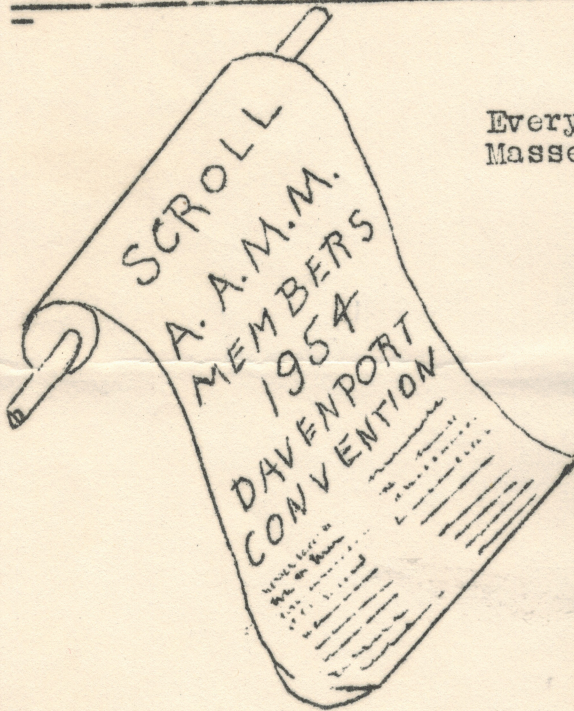 SCROLL
A. A. M. M.
MEMBERS
1954
DAVENPORT
CONVENTION
Every
Masse